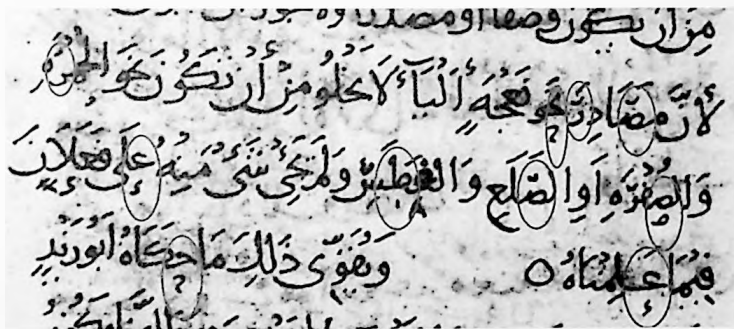 من أن تكون وصفا أو مصدرا
لأنَّ مَصَادِرَ نحو نَعْجَه أَلْيَاءَ لَا يَخْلُو مِنْ أَنْ تَكُونَ نَحوَ الحُمْرَهِ
وَالصُفْرَهِ أَوِ الصَّلَعِ وَالفَطَسِ وَلَمْ يَجِئ شَىْءٌ مِنْهُ عَلَى فَعَلَانَ
فِيمَا عَلِمْنَاهُ ٥ وَيُقَوِّى ذَلِكَ مَا حَكَاهُ أَبُو زَيْدٍ